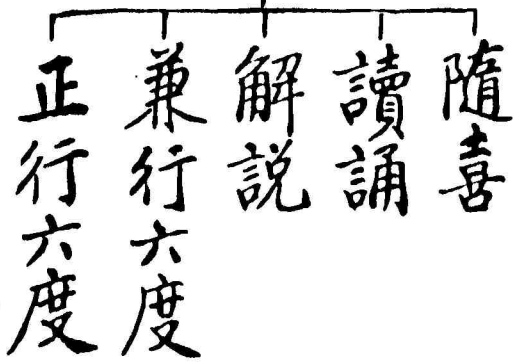 隨喜
讀誦
解説
兼行六度
正行六度